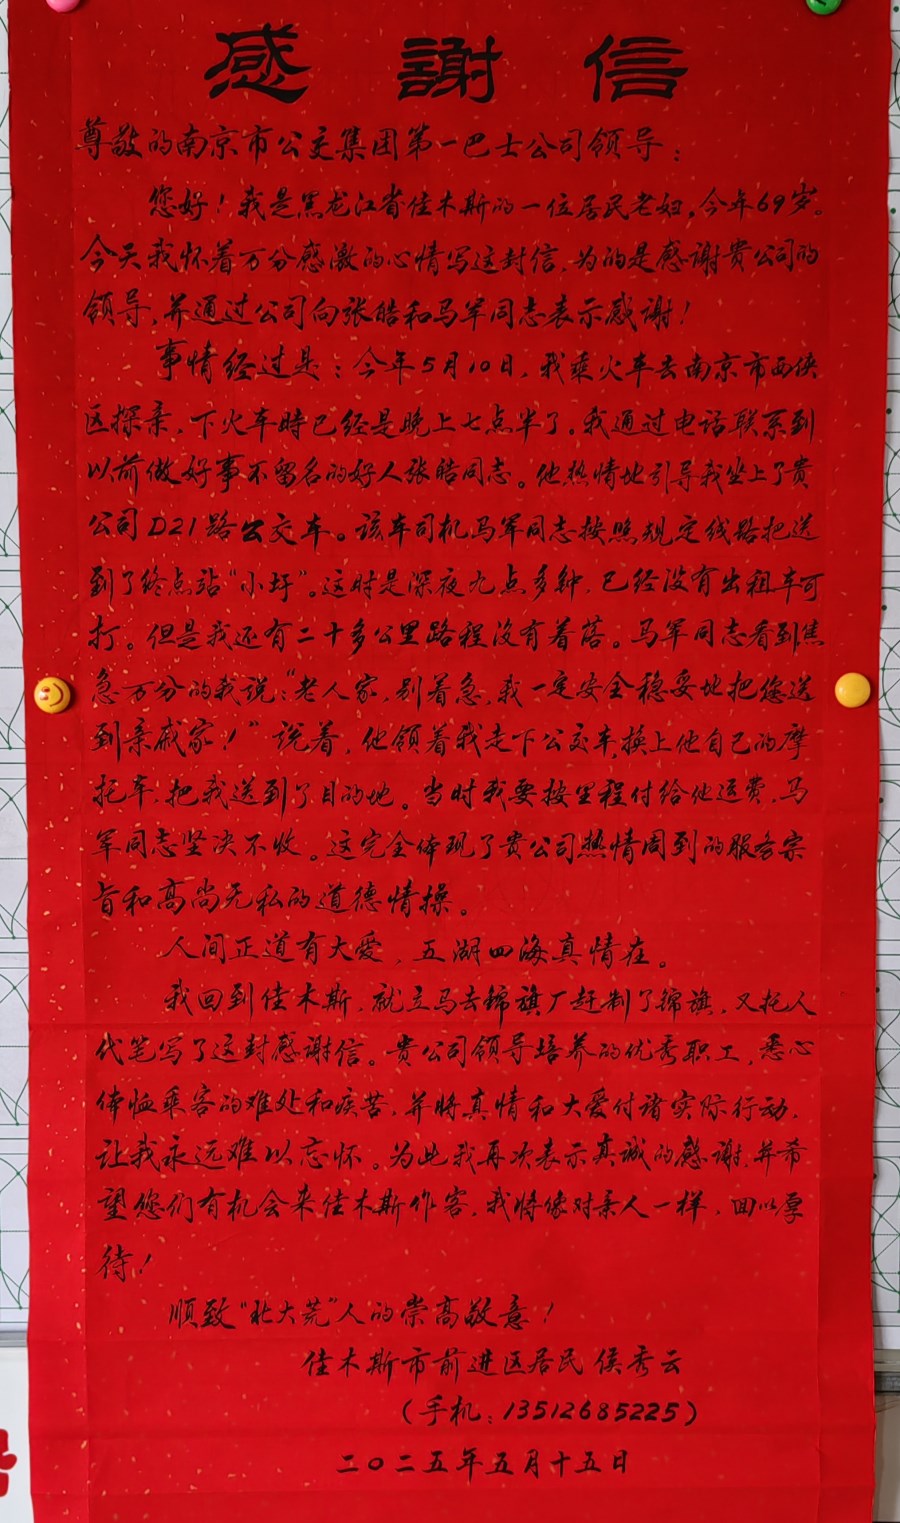 感謝信
尊敬的南京市公交集团第一巴士公司领导：
您好！我是黑龙江省佳木斯的一位居民老妇，今年69岁。
今天我怀着万分感激的心情写这封信，为的是感谢贵公司的
领导，并通过公司向张皓和马军同志表示感谢！
事情经过是：今年5月10日，我乘火车去南京市西侠
区探亲，下火车時已经是晚上七点半了。我通过电话联系到
以前做好事不留名的好人张皓同志。他热情地引导我坐上了贵
公司D21路公交车。该车司机马军同志按照规定线路把送
到了终点站“小圩”。这时是深夜九点多钟，已经没有出租车可
打。但是我还有二十多公里路程没有着落。马军同志看到焦
急万分的我说：“老人家，别着急，我一定安全稳妥地把您送
到亲戚家！”说着，他领着我走下公交车，换上他自己的摩
托车，把我送到了目的地。当时我要按里程付给他运费，马
军同志坚决不收。这完全体现了贵公司热情周到的服务宗
旨和高尚无私的道德情操。
人间正道有大爱，五湖四海真情在。
我回到佳木斯，就立马去锦旗厂赶制了锦旗，又托人
代笔写了这封感谢信。贵公司领导培养的优秀职工，悉心
体恤乘客的难处和疾苦，并将真情和大爱付诸实际行动，
让我永远难以忘怀。为此我再次表示真诚的感谢，并希
望您们有机会来佳木斯作客，我将像对亲人一样，回以厚
待！
顺致“北大荒”人的崇高敬意！
佳木斯市前进区居民 侯秀云
（手机：13512685225）
二〇二五年五月十五日